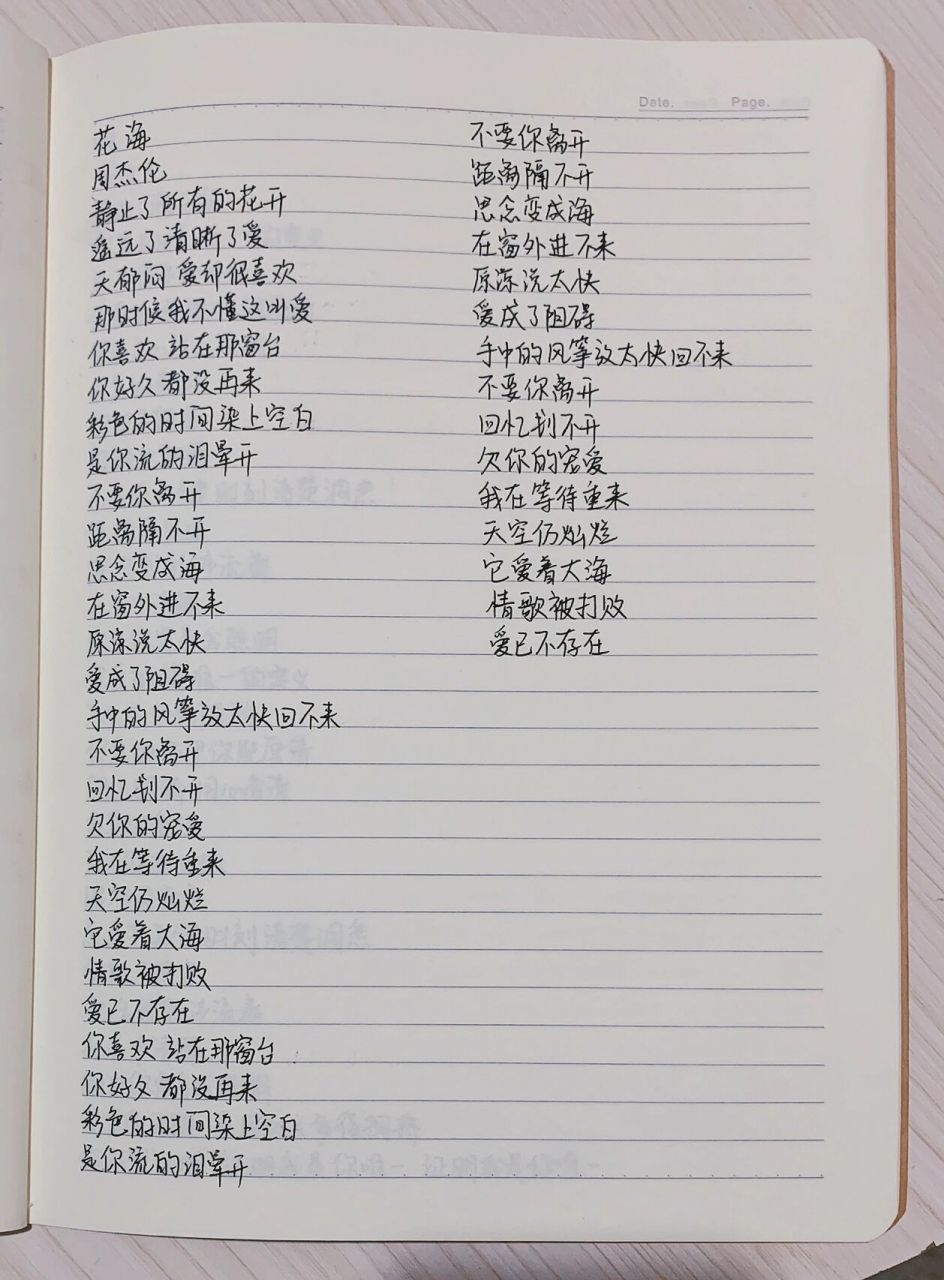 Date.
Page.
花海
周杰伦
静止了所有的花开
遥远了清晰了爱
天郁闷 爱却很喜欢
那时候我不懂这叫爱
你喜欢 站在那窗台
你好久 都没再来
彩色的时间染上空白
是你流的泪晕开
不要你离开
距离隔不开
思念变成海
在窗外进不来
原谅说太快
爱成了阻碍
手中的风筝放太快回不来
不要你离开
回忆划不开
欠你的宠爱
我在等待重来
天空仍灿烂
它爱着大海
情歌被打败
爱已不存在
你喜欢 站在那窗台
你好久 都没再来
彩色的时间染上空白
是你流的泪晕开
不要你离开
距离隔不开
思念变成海
在窗外进不来
原谅说太快
爱成了阻碍
手中的风筝放太快回不来
不要你离开
回忆划不开
欠你的宠爱
我在等待重来
天空仍灿烂
它爱着大海
情歌被打败
爱已不存在